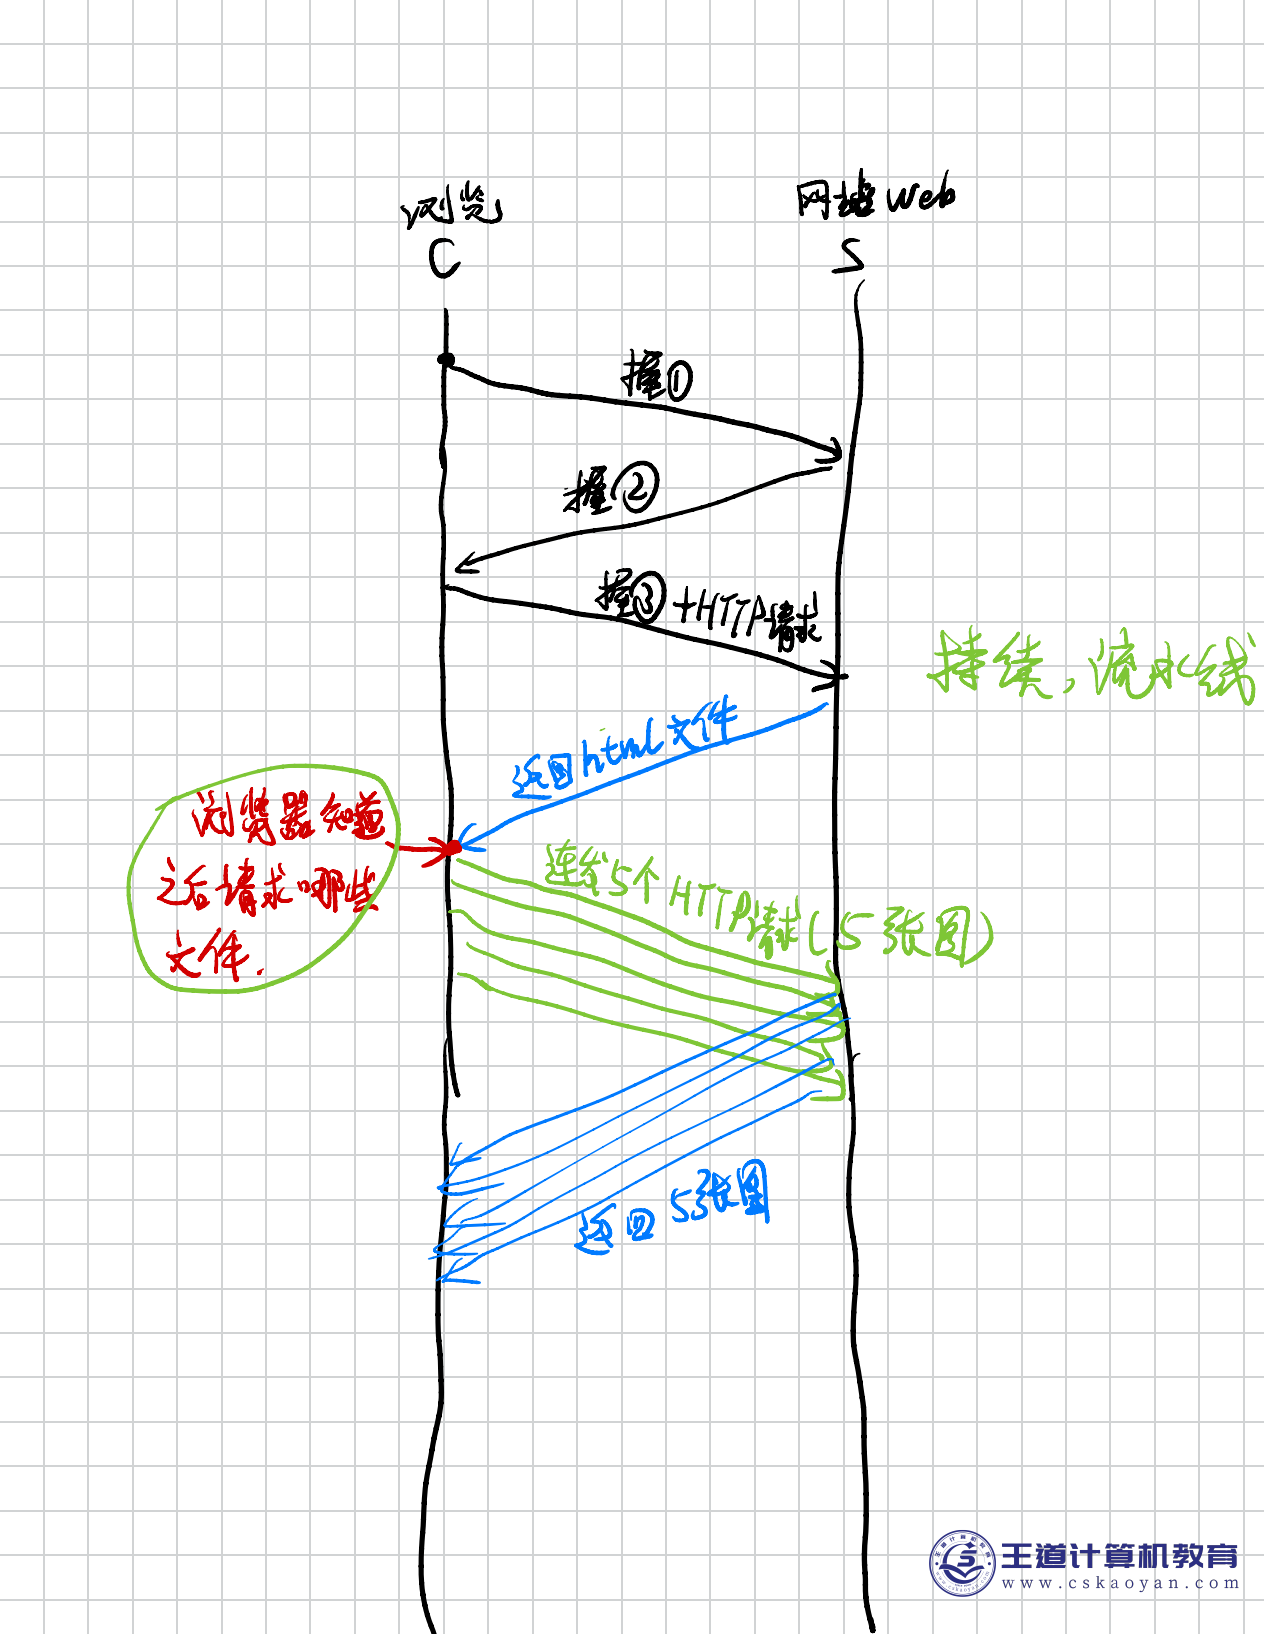 浏览
C
网站Web
S
握①
握②
握③+HTTP请求
持续，流水线
返回html文件
浏览器知道
之后请求哪些
文件.
连发5个HTTP请求(5张图)
返回5张图
王道计算机教育
www.cskaoyan.com